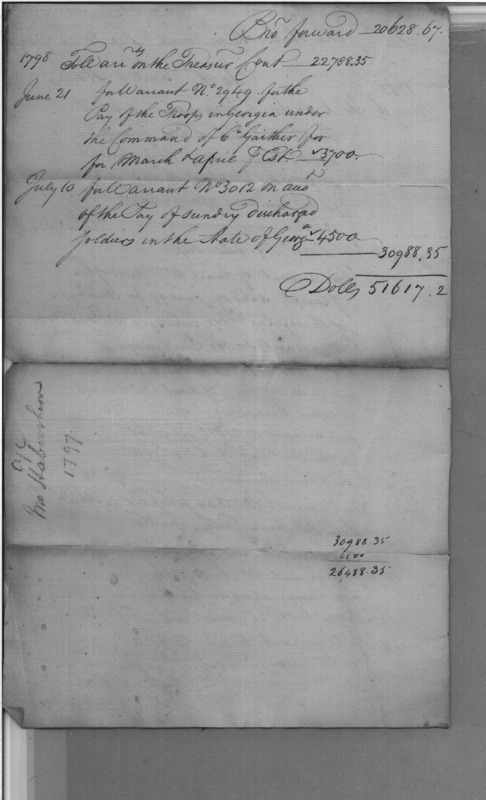 Bro.t forward 20628.67.
1798 To Warr.ts on the Treasur.r Cont 22788.35
June 21 for Warrant N.o 2949. for the
Pay of the Troops in Georgia under
the Command of C.o Gaither for
for March & April 3700.
July 10 for Warrant N.o 3012 on acco.
of the Pay of sundry discharged
soldiers in the State of Georg.a 4500
30988.35
Dolls 51617.2
Jno Habersham
1797.
30988.35
4500
26,488.35